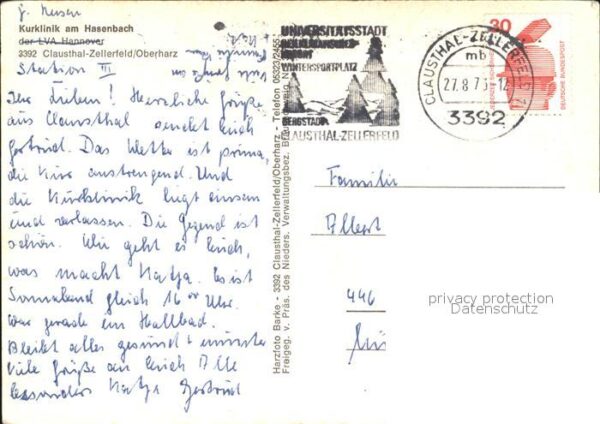 Kurklinik am Hasenbach
der LVA Hannover
3392 Clausthal-Zellerfeld/Oberharz
Station III
Ihr Lieben! Herzliche Grüße
aus Clausthal sendet Euch
Gertrud. Das Wetter ist prima,
die Kur anstrengend. Und
die Kurklinik liegt einsam
und verlassen. Die Gegend ist
schön. Wie geht es Euch,
was macht Katja. Es ist
Sonnabend gleich 16 00 Uhr.
War gerade im Hallbad.
Bleibt alles gesund + munter
Viele Grüße an Euch Alle
besonders Katja Gertrud
Harzfoto Barke - 3392 Clausthal-Zellerfeld/Oberharz - Telefon 05323/2455
Freigeg. v. Präs. des Nieders. Verwaltungsbez.
UNIVERSITÄTSSTADT
WINTERSPORTPLATZ
BERGSTADT
CLAUSTHAL-ZELLERFELD
CLAUSTHAL-ZELLERFELD
mb
27.8.7
3392
30
DEUTSCHE BUNDESPOST
Familie
446
privacy protection
Datenschutz